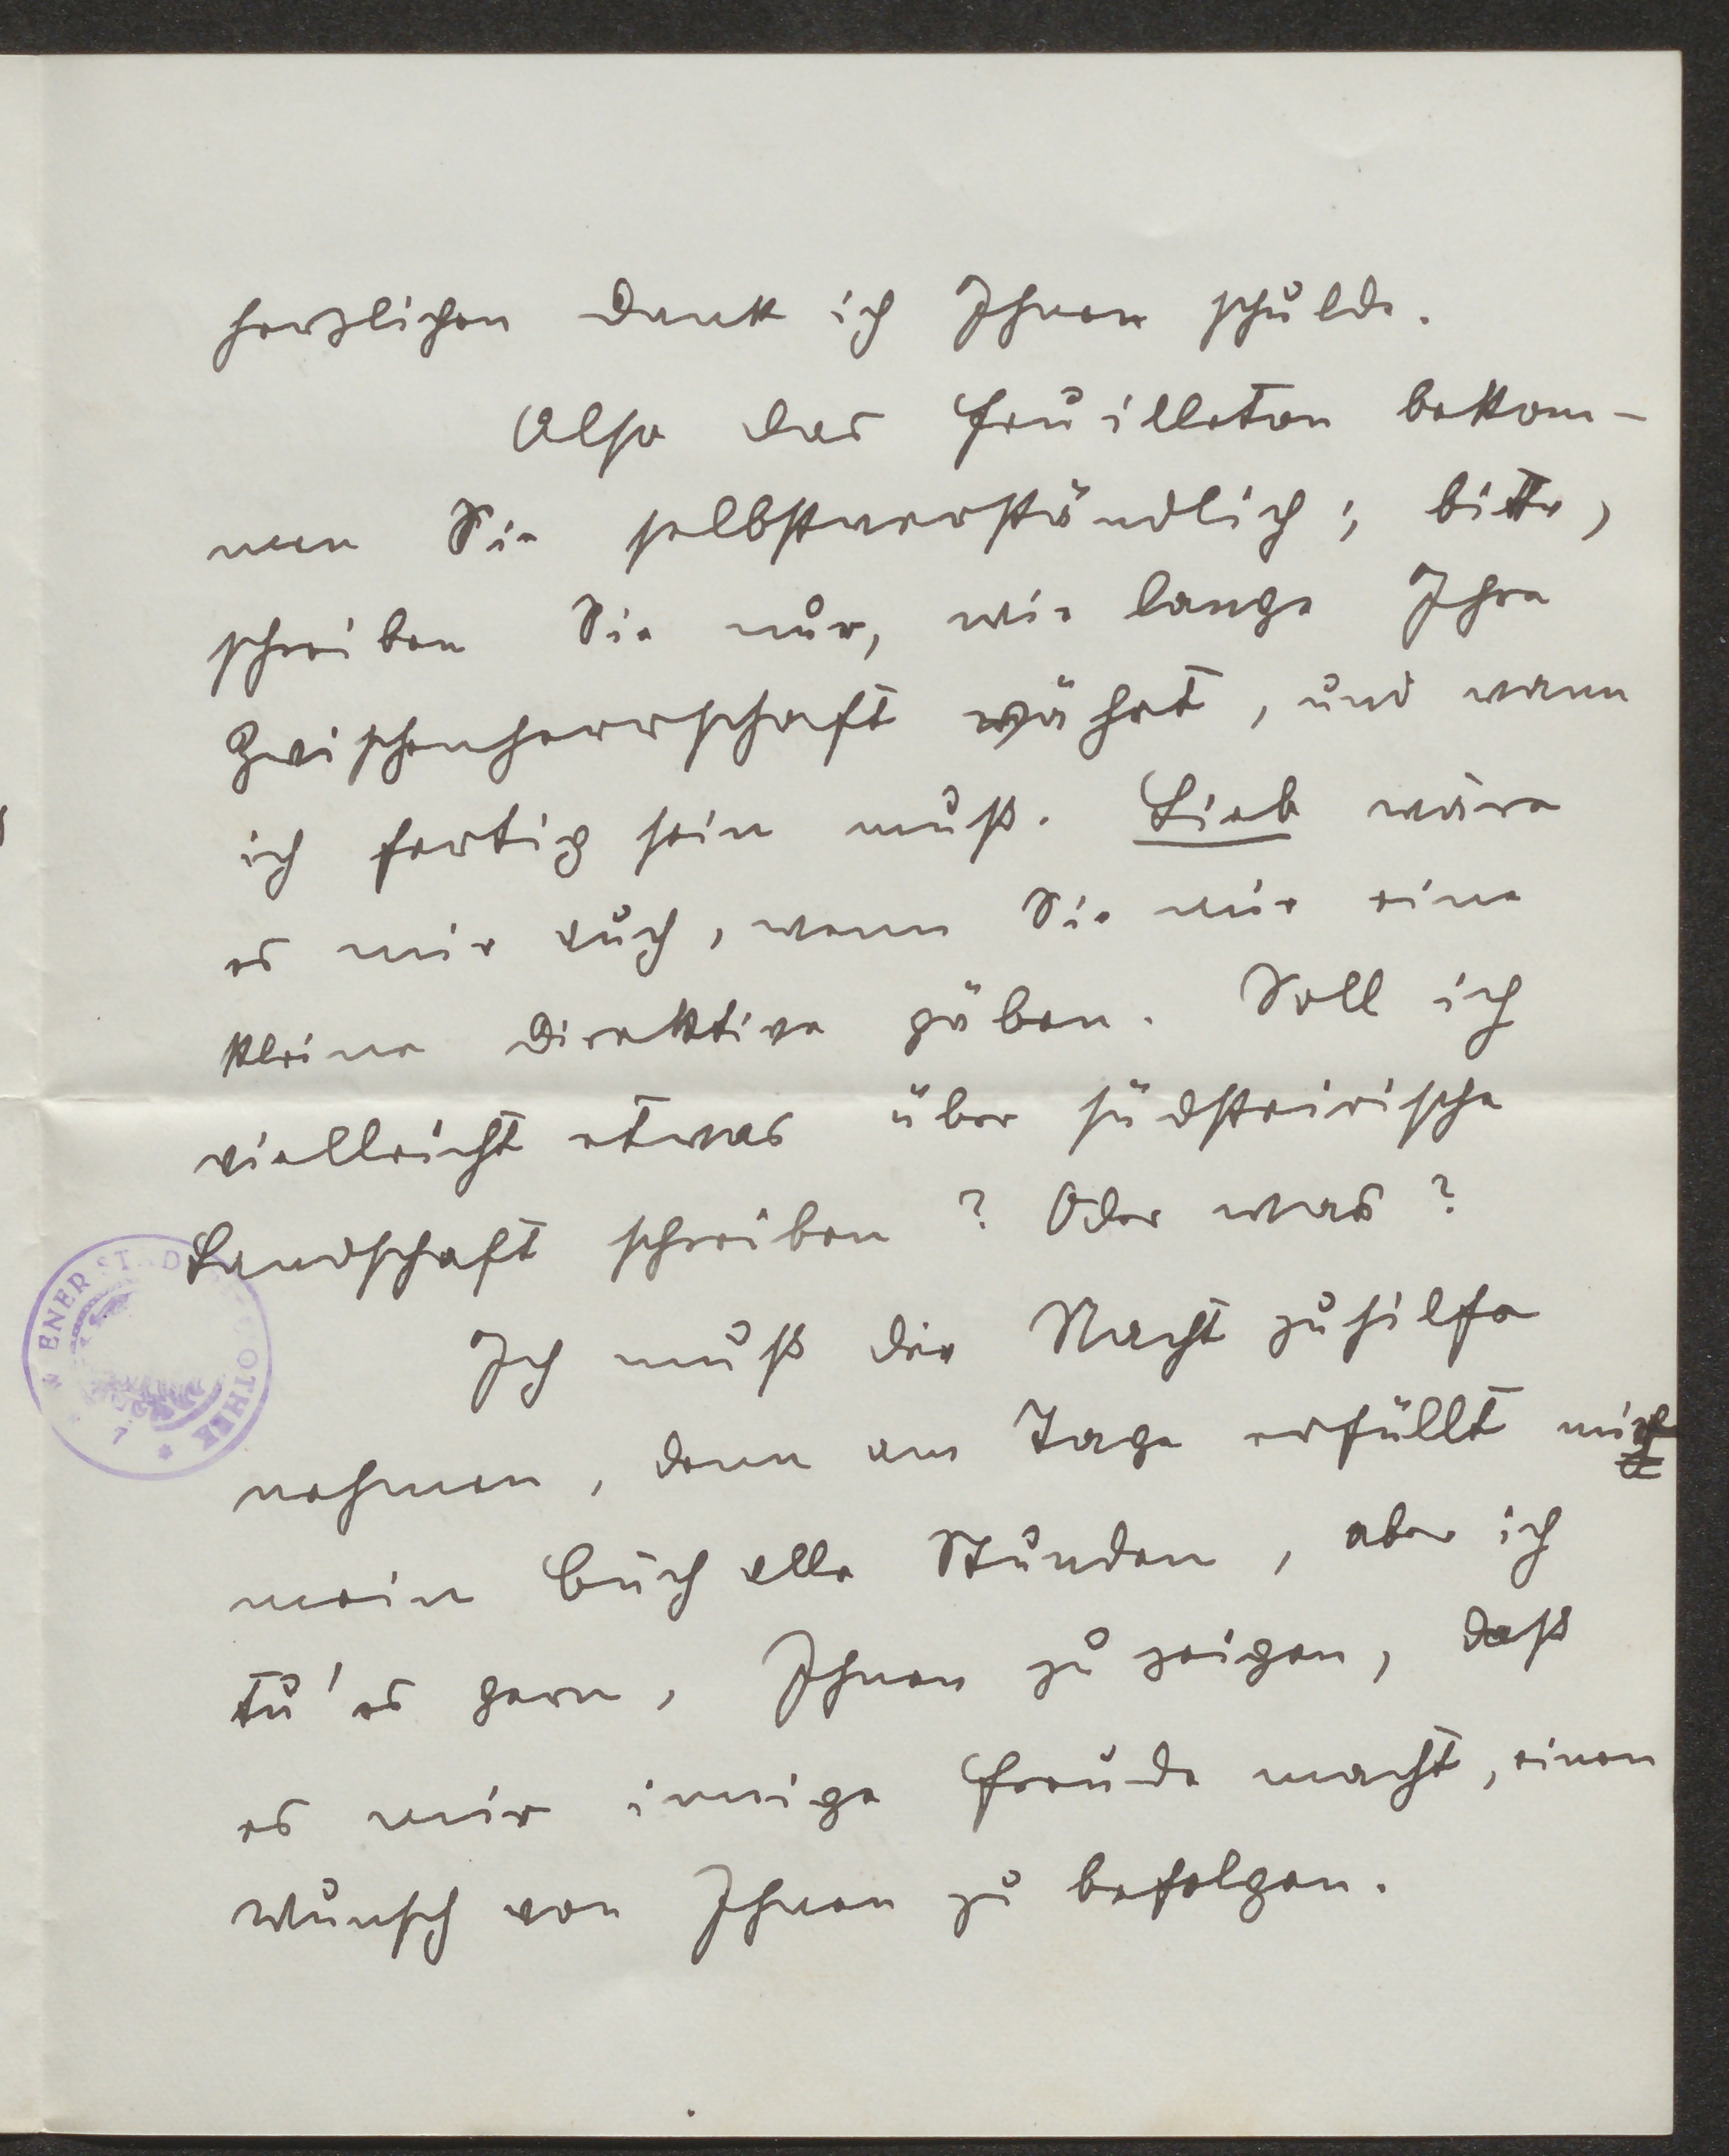 herzlichen Dank ich Ihnen schulde.
Also das Feuilleton bekom-
men Sie selbstverständlich; bitte,
schreiben Sie nur, wie lange Ihre
Zwischenherrschaft währt, und wann
ich fertig sein muß. Lieb wäre
es mir auch, wenn Sie mir eine
kleine Direktive gäben. Soll ich
vielleicht etwas über südsteirische
Landschaft schreiben? Oder was?
Ich muß die Nacht zuhilfe
nehmen, denn am Tage erfüllt mir
mein Buch alle Stunden, aber ich
tu's gern, Ihnen zu zeigen, daß
es mir innige Freude macht, einen
Wunsch von Ihnen zu befolgen.
WIENER STADTBIBLIOTHEK